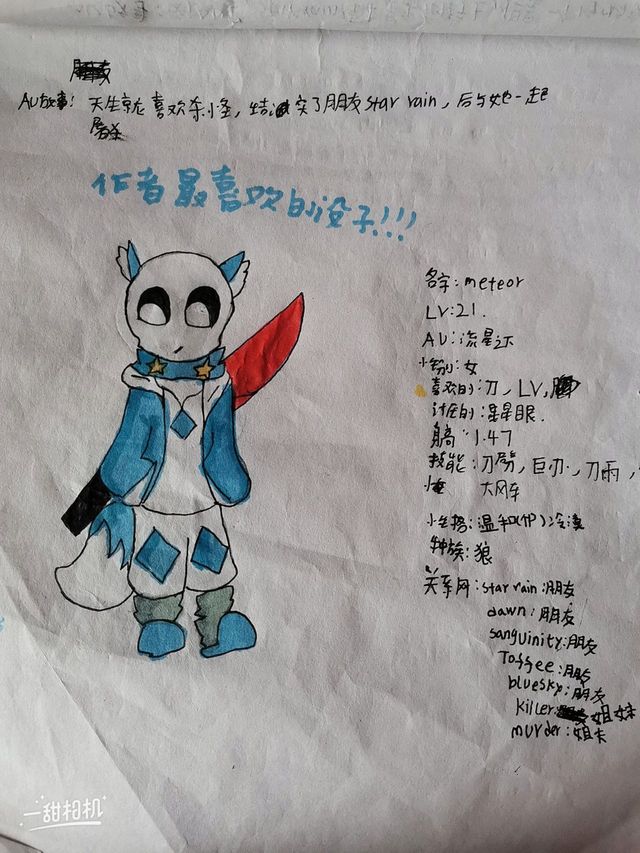 AU故事: 天生就龙喜欢杀小怪, 结识了朋友star rain, 后与她一起
屠杀
作者最喜欢的设子!!!
名字: meteor
LV:21.
AU: 流星
性别: 女
喜欢的: 刀, LV,
讨厌的: 星星眼.
身高: 1.47
技能: 刀, 巨刃, 刀雨,
大风车
性格: 温和(伪)冷漠
种族: 狼
关系网: star rain: 朋友
dawn: 朋友
sanguinity: 朋友
Toffee: 朋友
bluesky: 朋友
Killer: 姐妹
murder: 姐夫
一甜相机